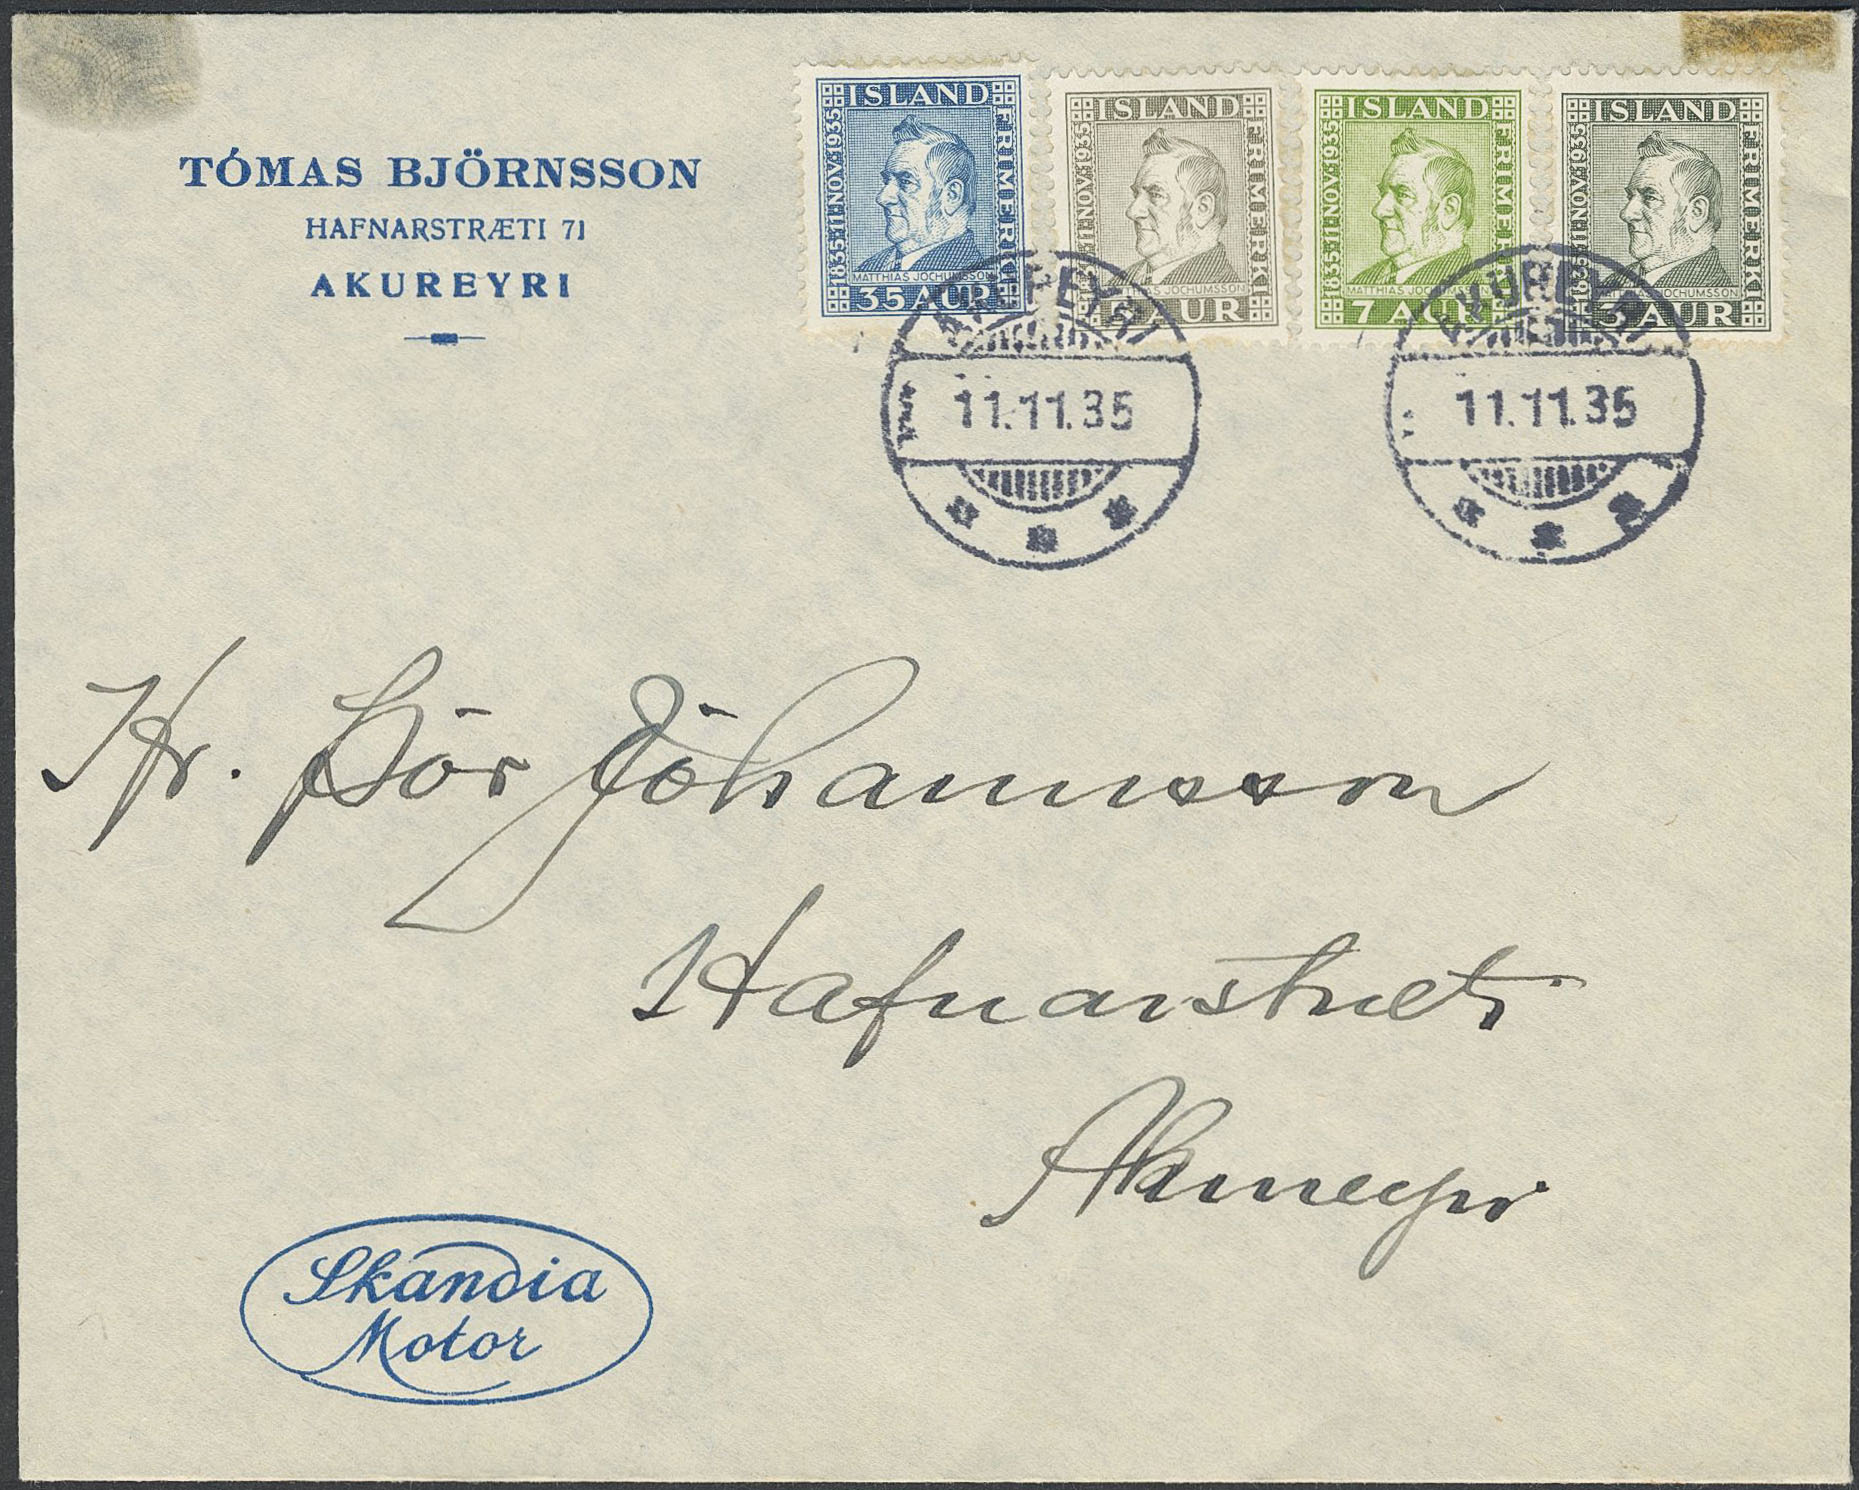 TÓMAS BJÖRNSSON
HAFNARSTRÆTI 71
AKUREYRI
ÍSLAND
1835·11·NOV·1935
FRÍMERKI
MATTHIAS JOCHUMSSON
35 AUR
ÍSLAND
11·NOV·1935
FRÍMERKI
MATTHIAS JOCHUMSSON
AUR
ÍSLAND
1835·11·NOV·1935
FRÍMERKI
MATTHIAS JOCHUMSSON
7 AUR
ÍSLAND
1835·11·NOV·1935
FRÍMERKI
MATTHIAS JOCHUMSSON
5 AUR
AKUREYRI
11.11.35
AKUREYRI
11.11.35
Hr. Þór Jóhannsson
Hafnarstræti
Akureyri
Skandia
Motor